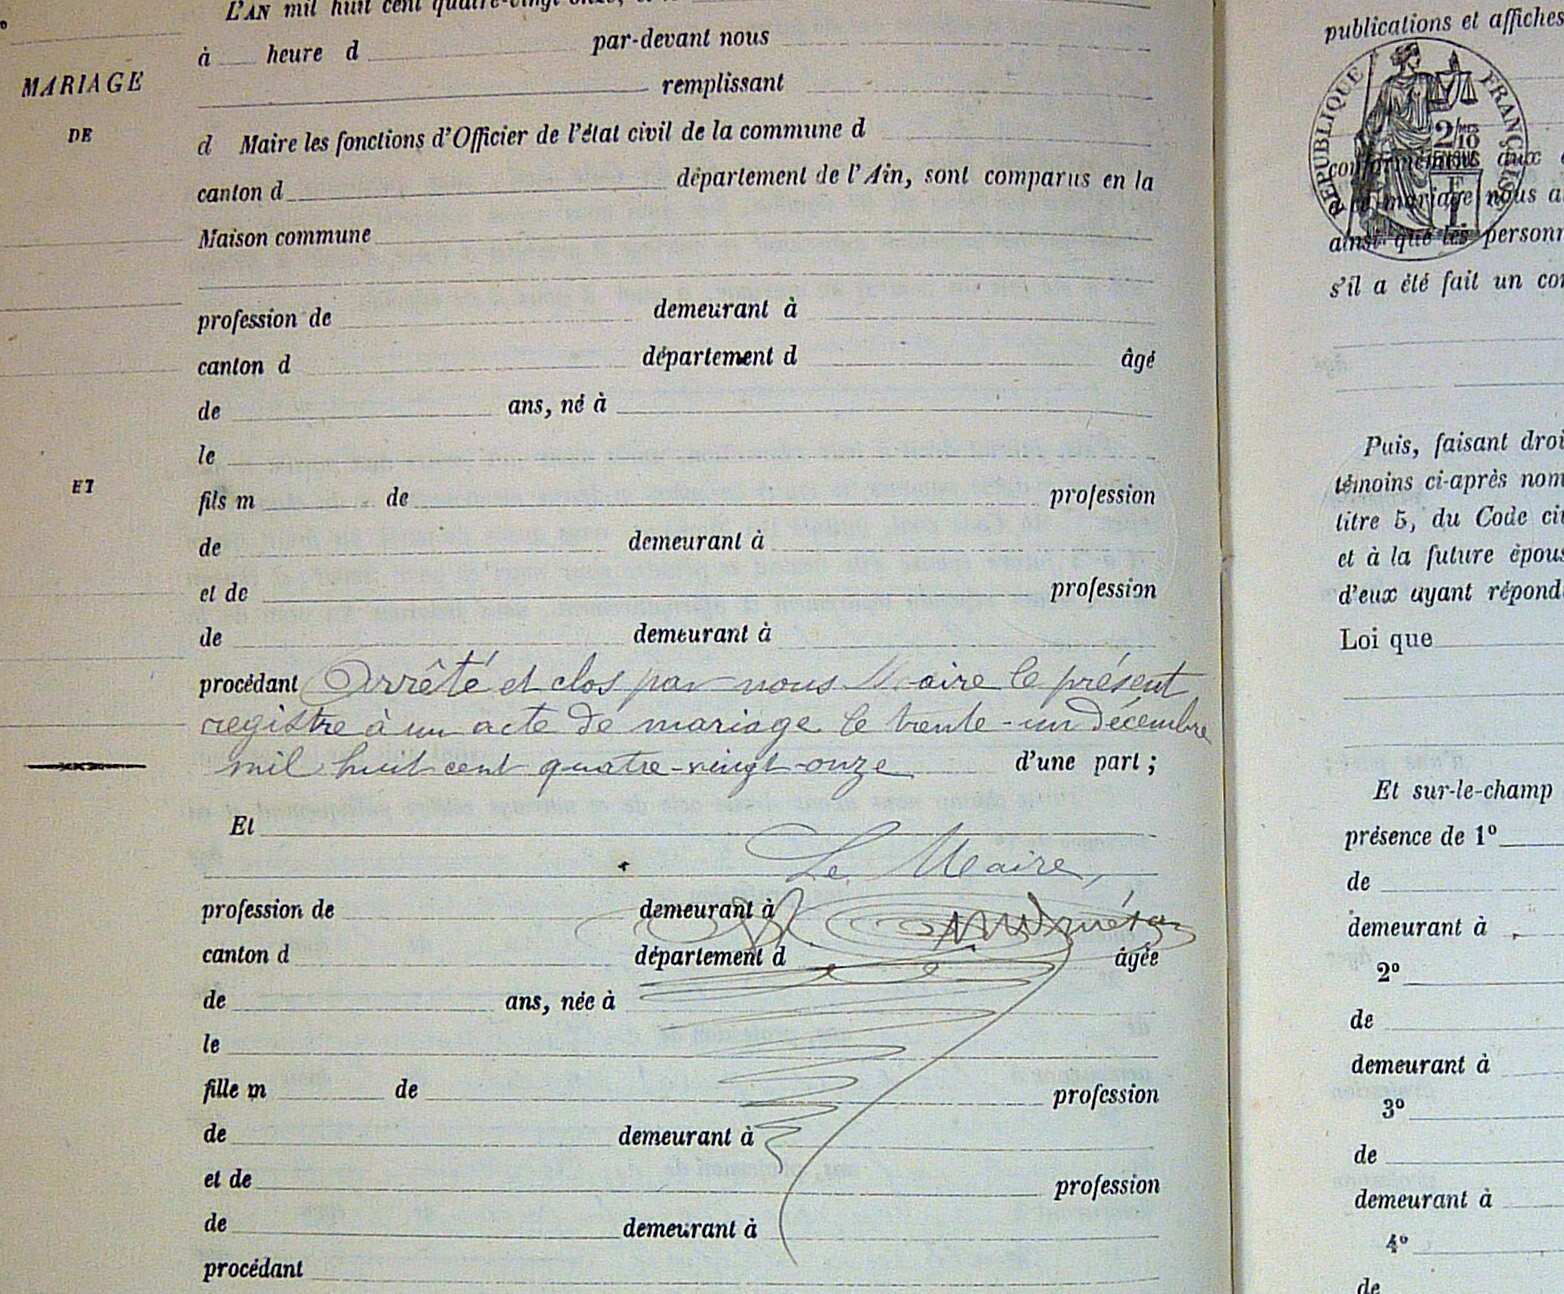 L'AN mil huit cent quatre-vingt onze, et le
à heure d par-devant nous
MARIAGE
remplissant
DE
d Maire les fonctions d'Officier de l'état civil de la commune d
canton d département de l'Ain, sont comparus en la
Maison commune
profession de demeurant à
canton d département d âgé
de ans, né à
le
ET
fils m de profession
de demeurant à
et de profession
de demeurant à
procédant Arrêté et clos par nous Maire le présent
registre à un acte de mariage le trente-un Décembre
mil huit cent quatre-vingt-onze d'une part ;
Et
Le Maire,
profession de demeurant à
canton d département d âgée
de ans, née à
le
fille m de profession
de demeurant à
et de profession
de demeurant à
procédant
publications et affiches
RÉPUBLIQUE FRANÇAISE
2/10
conformément aux
mariage nous
ainsi que les personn
s'il a été fait un con
Puis, faisant droi
témoins ci-après nom
titre 5, du Code civ
et à la future épous
d'eux ayant répond
Loi que
Et sur-le-champ
présence de 1º
de
demeurant à
2º
de
demeurant à
3º
de
demeurant à
4º
de